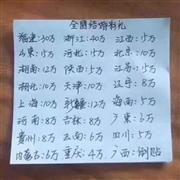 全国结婚彩礼
福建30万 浙江40万 江西35万
山东5万 河北15万 北京10万
湖南12万 陕西5万 江苏15万
湖北10万 天津10万 辽宁8万
上海10万 新疆12万 海南5万
河南8万 吉林8万 广东6万
贵州8万 云南6万 四川5万
内蒙古6万 重庆4万 广西倒贴